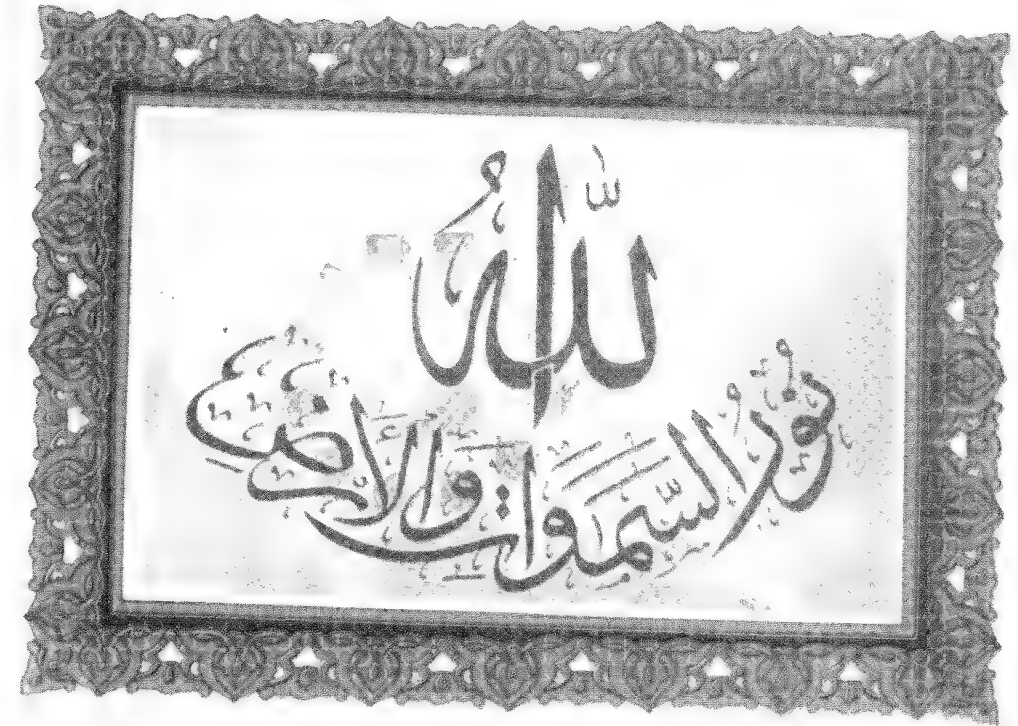 اللّٰهُ
نُورُ السَّمٰوَاتِ وَالْأَرْضِ